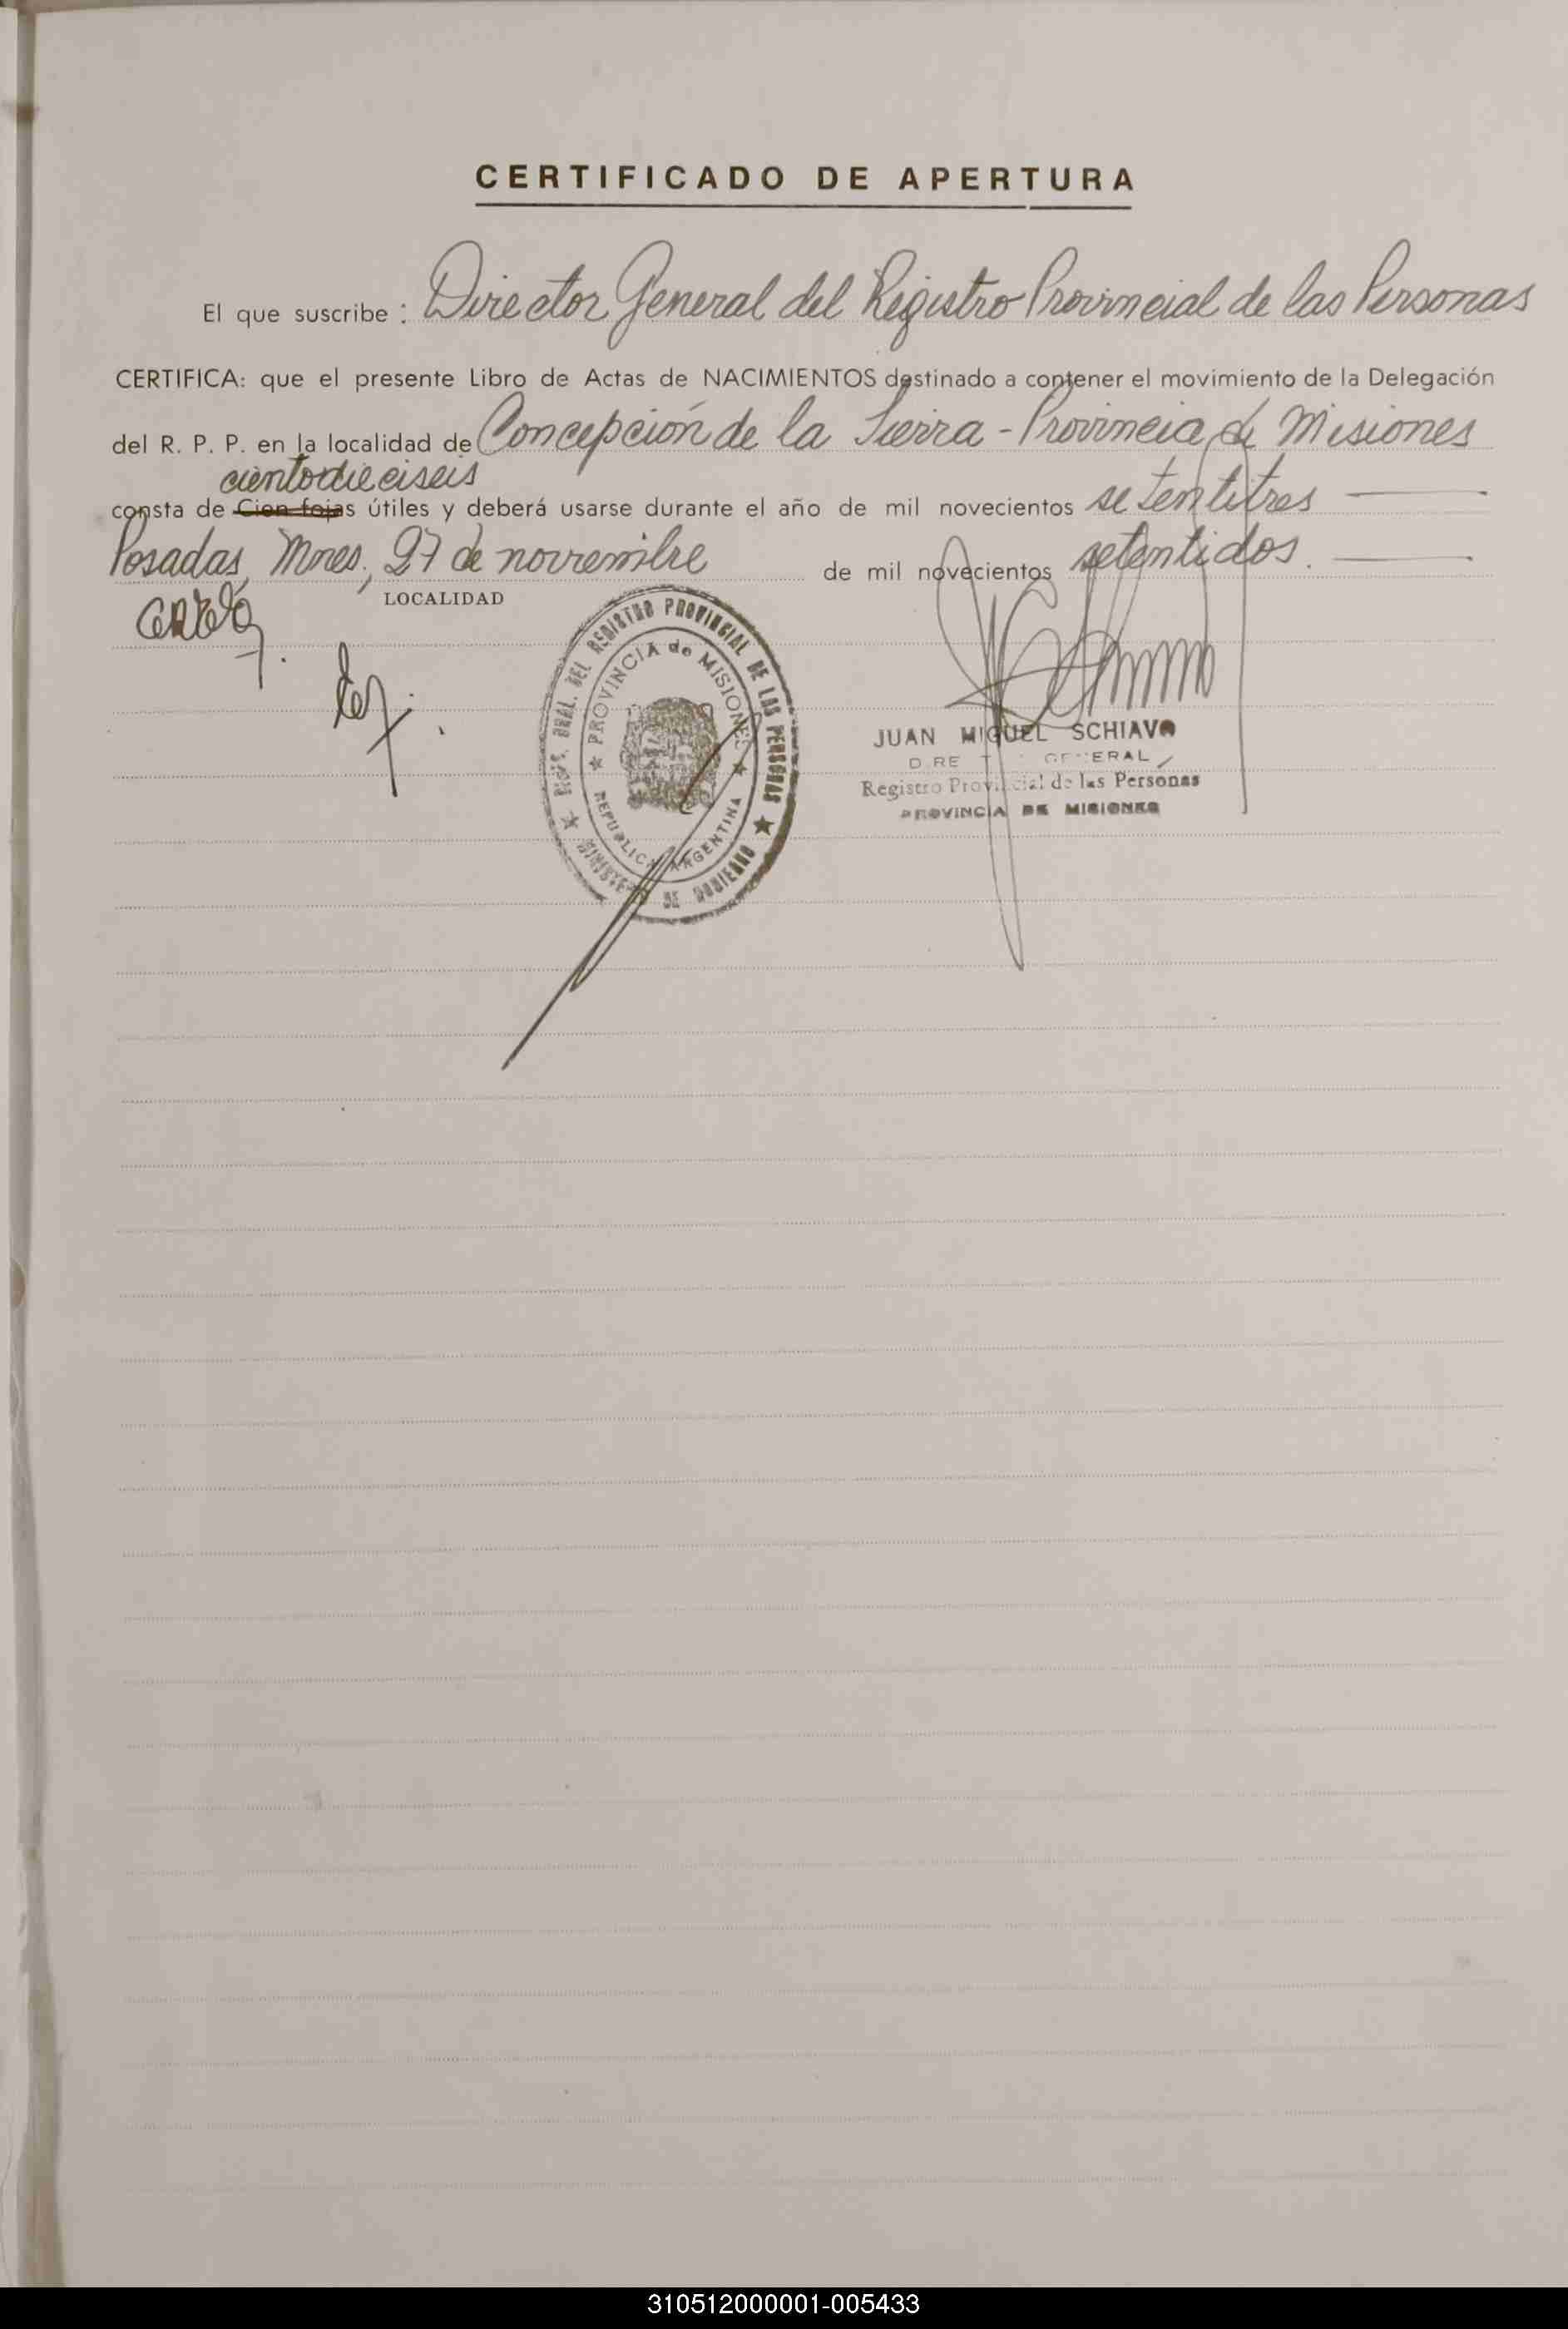 CERTIFICADO DE APERTURA
El que suscribe: Director General del Registro Provincial de las Personas
CERTIFICA: que el presente Libro de Actas de NACIMIENTOS destinado a contener el movimiento de la Delegación
del R. P. P. en la localidad de Concepción de la Sierra - Provincia de Misiones
cientodieciseis
consta de Cien fojas útiles y deberá usarse durante el año de mil novecientos setentitres
Posadas, Mnes., 27 de noviembre de mil novecientos setentidos.
LOCALIDAD
DEL REGISTRO PROVINCIAL DE LAS PERSONAS
PROVINCIA de MISIONES
REPUBLICA ARGENTINA
MINISTERIO DE GOBIERNO
JUAN MIGUEL SCHIAVO
DIRECTOR GENERAL
Registro Provincial de las Personas
PROVINCIA DE MISIONES
310512000001-005433